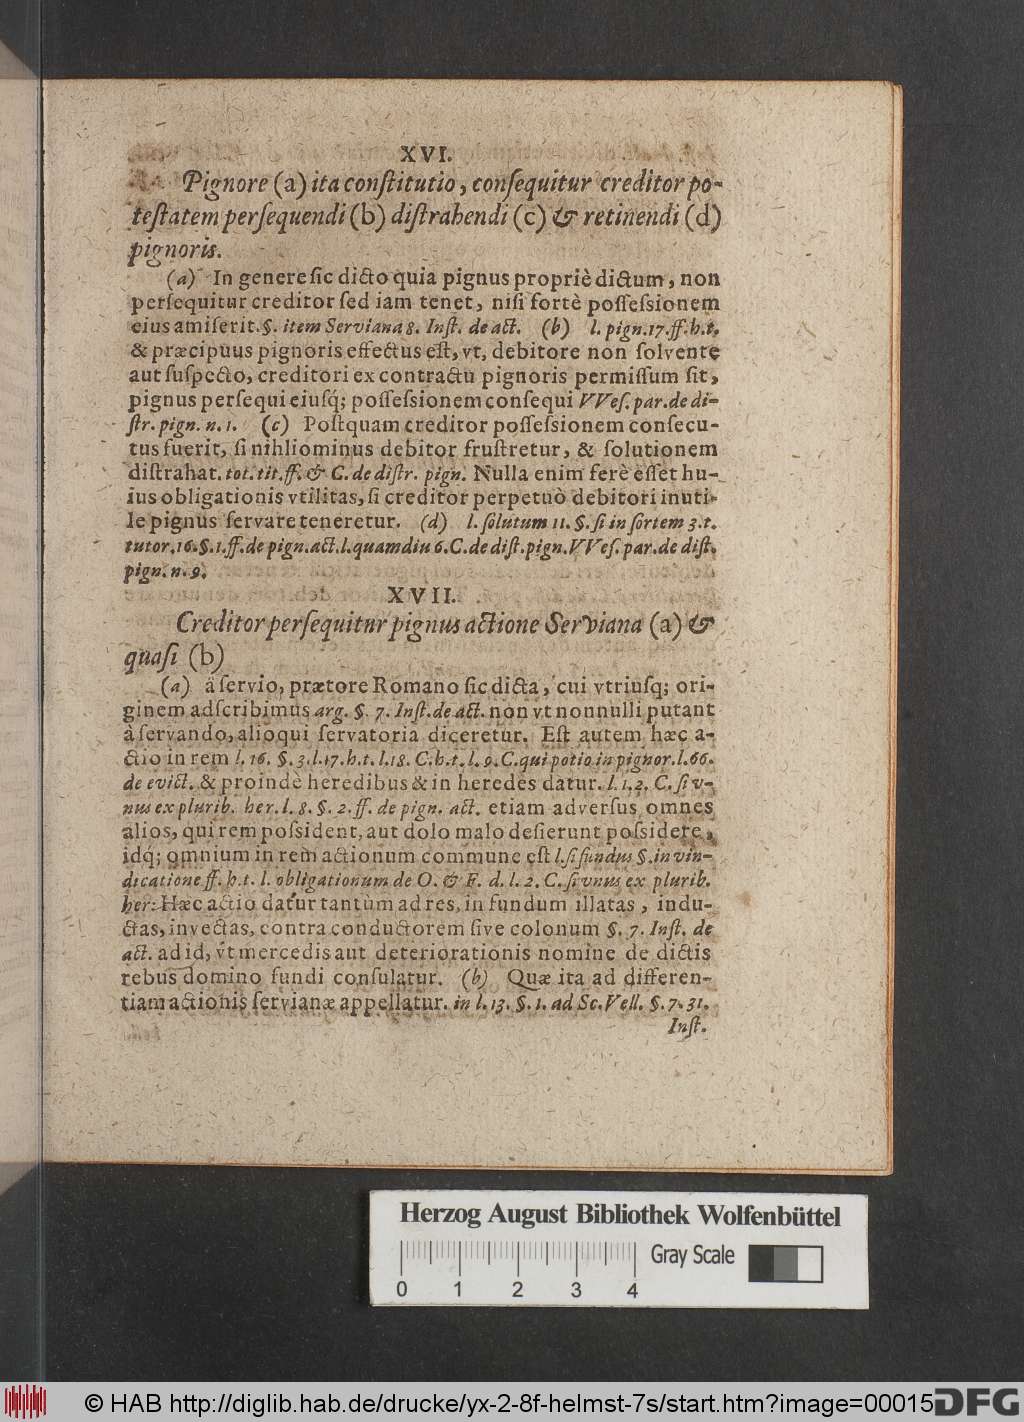 XVI.
Pignore (a) ita conſtitutio, conſequitur creditor po-
teſtatem perſequendi (b) diſtrahendi (c) & retinendi (d)
pignoris.
(a) In genere ſic dicto quia pignus propriè dictum, non
perſequitur creditor ſed iam tenet, niſi fortè poſſeſsionem
eius amiſerit. §. item Serviana 8. Inſt. de act. (b) l. pign. 17. ff. h. t.
& præcipuus pignoris effectus eſt, vt, debitore non ſolvente
aut ſuſpecto, creditori ex contractu pignoris permiſſum ſit,
pignus perſequi eiuſq́; poſſeſsionem conſequi VVeſ. par. de di-
ſtr. pign. n. 1. (c) Poſtquam creditor poſſeſsionem conſecu-
tus fuerit, ſi nihliominus debitor fruſtretur, & ſolutionem
diſtrahat. tot. tit. ff. & C. de diſtr. pign. Nulla enim ferè eſſet hu-
ius obligationis vtilitas, ſi creditor perpetuò debitori inuti-
le pignus ſervare teneretur. (d) l. ſolutum 11. §. ſi in ſortem 3. t.
tutor. 16. §. 1. ff. de pign. act. l. quamdiu 6. C. de diſt. pign. VVeſ. par. de diſt.
pign. n. 9.
XVII.
Creditor perſequitur pignus actione Serviana (a) &
quaſi (b)
(a) à ſervio, prætore Romano ſic dicta, cui vtriuſq; ori-
ginem adſcribimus arg. §. 7. Inſt. de act. non vt nonnulli putant
à ſervando, alioqui ſervatoria diceretur. Eſt autem hæc a-
ctio in rem l. 16. §. 3. l. 17. h. t. l. 18. C. h. t. l. 9. C. qui potio in pignor. l. 66.
de evict. & proindè heredibus & in heredes datur. l. 1, 2. C. ſi v-
nus ex plurib. her. l. 8. §. 2. ff. de pign. act. etiam adverſus omnes
alios, qui rem poſsident, aut dolo malo deſierunt poſsidere,
idq́; omnium in rem actionum commune eſt l. ſi fundus §. in vin-
dicatione ff. h. t. l. obligationum de O. & F. d. l. 2. C. ſi vnus ex plurib.
her: Hæc actio datur tantùm ad res, in fundum illatas, indu-
ctas, invectas, contra conductorem ſive colonum §. 7. Inſt. de
act. ad id, vt mercedis aut deteriorationis nomine de dictis
rebus domino fundi conſulatur. (b) Quæ ita ad differen-
tiam actionis ſervianæ appellatur. in l. 13. §. 1. ad Sc. Vell. §. 7. 31.
Inſt.
Herzog August Bibliothek Wolfenbüttel
Gray Scale
0 1 2 3 4
© HAB http://diglib.hab.de/drucke/yx-2-8f-helmst-7s/start.htm?image=00015
DFG